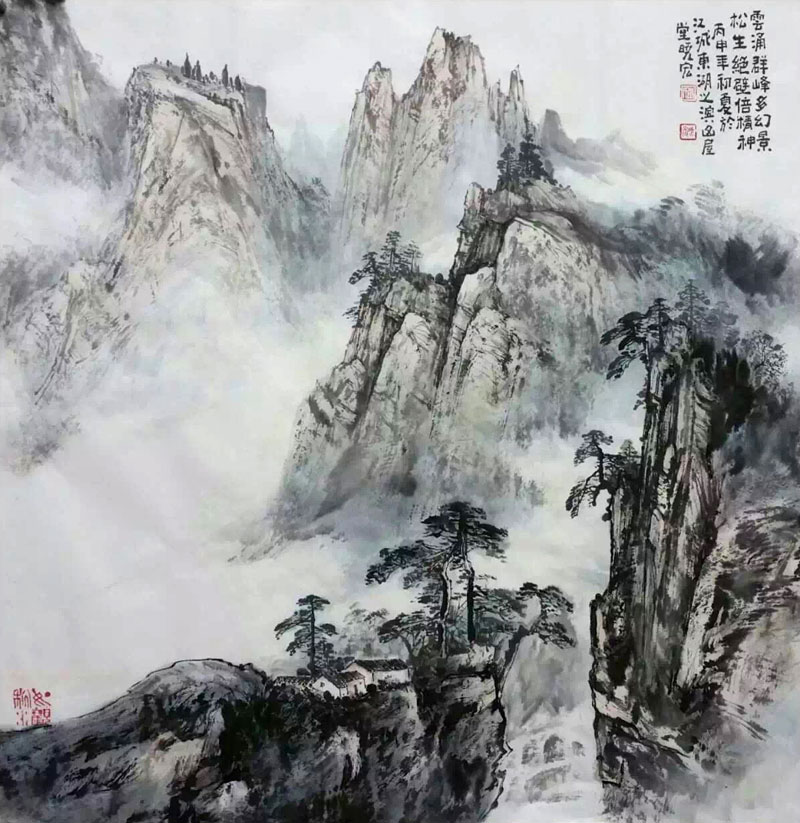 雲涌群峰多幻景
松生絶壁倍精神
丙申年初夏於
江城東湖之濱屋
堂